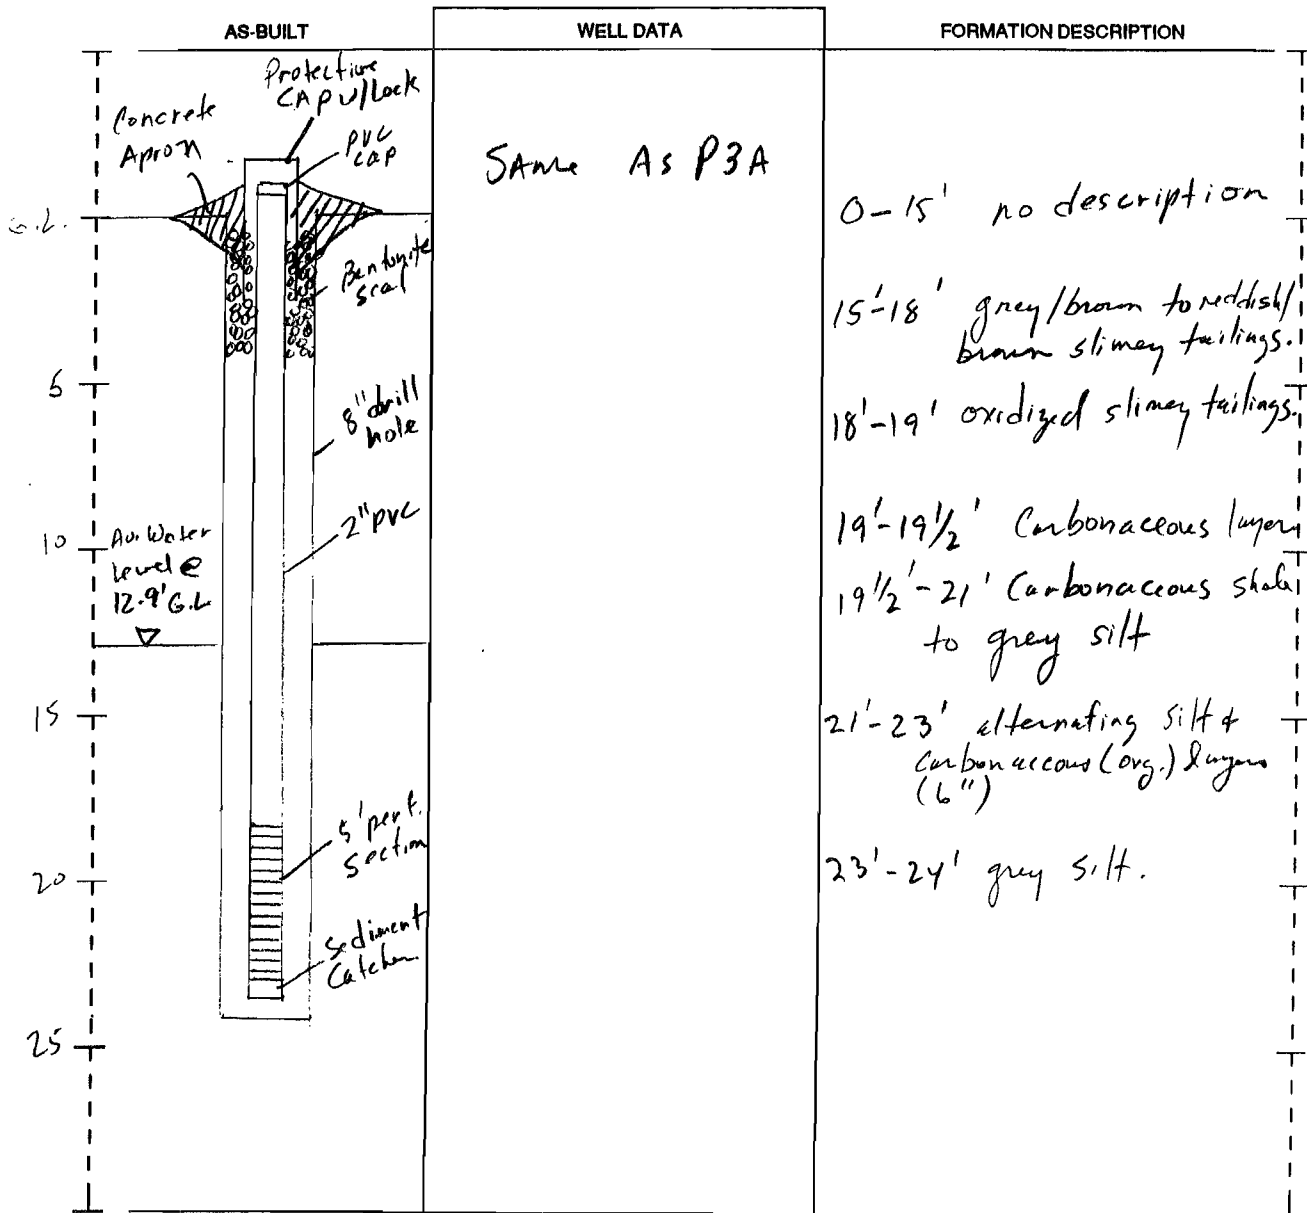 AS-BUILT
WELL DATA
FORMATION DESCRIPTION
Protective
CAP W/Lock
Concrete
Apron
PVC
cap
G.L.
Bentonite
seal
5
8" drill
hole
2" PVC
10
Av. Water
level @
12.9' G.L
15
5' perf.
section
20
Sediment
Catcher
25
SAme As P3A
0-15' no description
15'-18' grey/brown to reddish/
brown slimey tailings.
18'-19' oxidized slimey tailings.
19'-19 1/2' Carbonaceous layers
19 1/2'-21' Carbonaceous shale
to grey silt
21'-23' alternating silt &
carbonaceous (org.) layers
(6")
23'-24' grey silt.